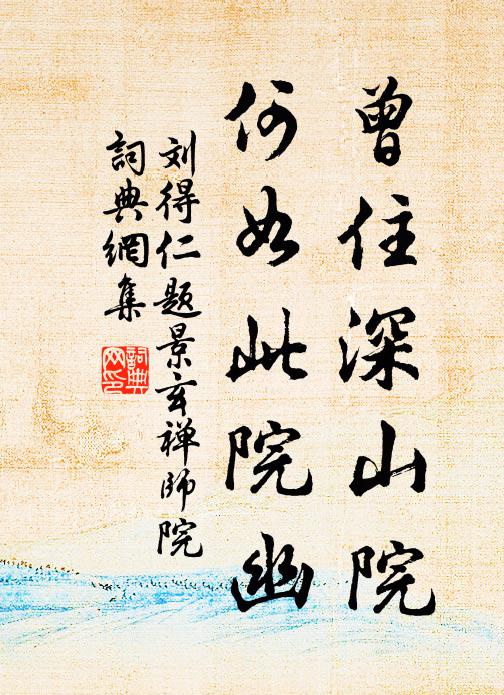 曾住深山院
何如此院幽
刘得仁题景玄禅師院
詞典網集
詞典
网印